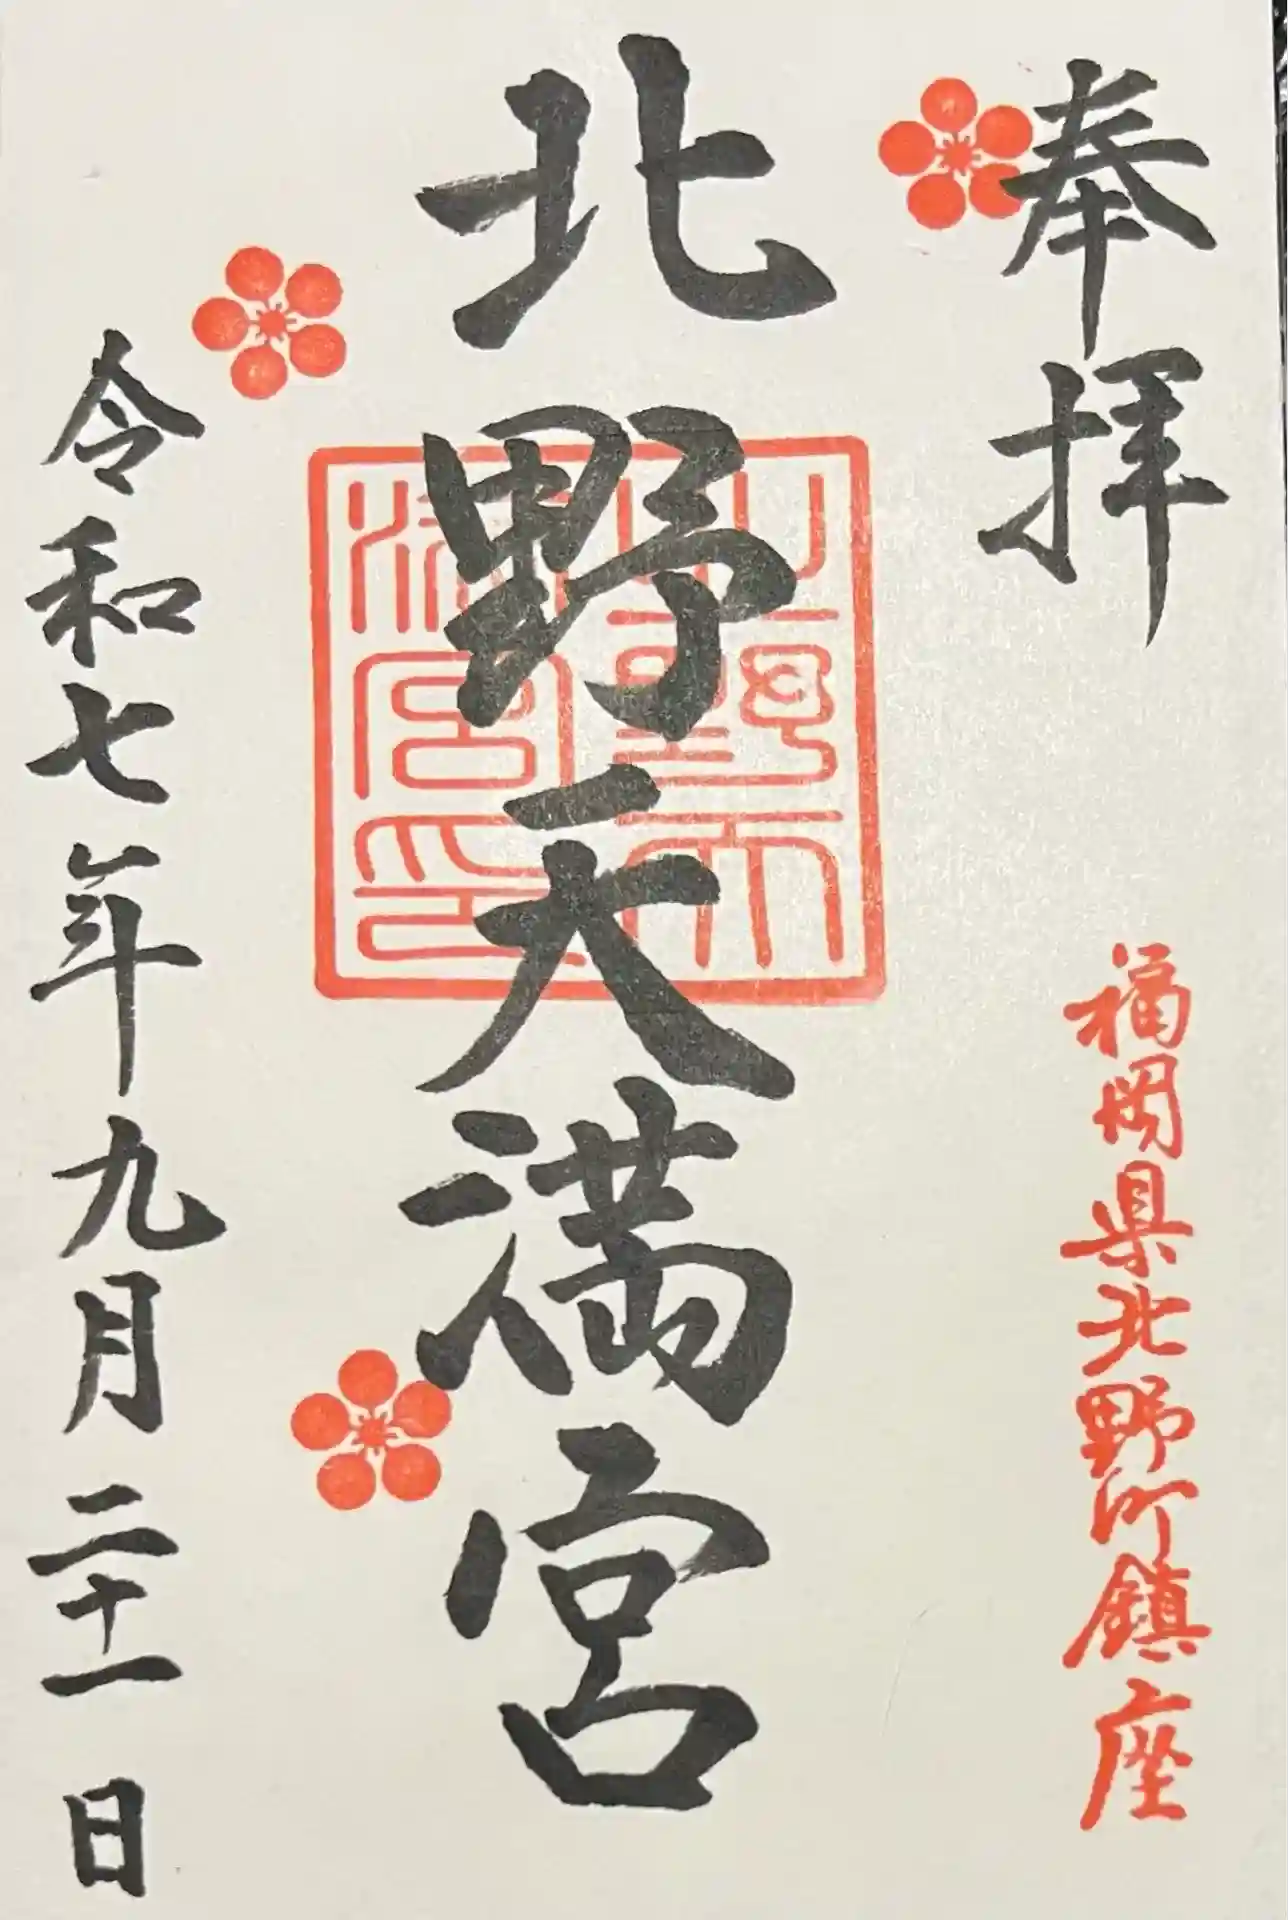 奉拝
福岡県北野町鎮座
北野天満宮
北野天満宮印
令和七年九月二十一日